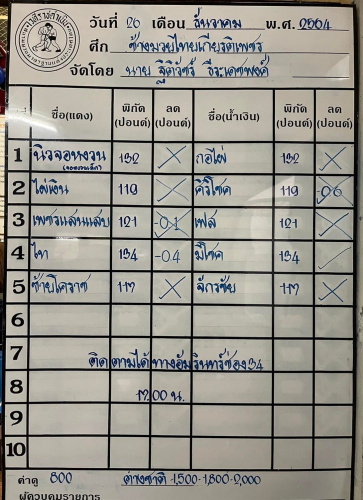 วันที่ 26 เดือน ธันวาคม พ.ศ. 2564
ศึก ช้างมวยไทยเกียรติเพชร
จัดโดย นาย ฐิติวัชร์ ธีระเดชพงศ์
ชื่อ(แดง) พิกัด (ปอนด์) ลด (ปอนด์) ชื่อ(น้ำเงิน) พิกัด (ปอนด์) ลด (ปอนด์)
1 นิวจอหงวน 132 กอไผ่ 132
2 ไผ่เงิน 119 ศิริโชค 119 -06
3 เพชรแสนแสบ 121 -01 เฟส 121
4 ไท 134 -04 มีโชค 134
5 ซ้ายโคราช 117 จักรชัย 117
6
7 ติดตามได้ทางอัมรินทร์ช่อง34
8 17.00 น.
9
10
ค่าดู 800 ต่างชาติ -1,500-1,800-2,000
ผู้ควบคุมรายการ